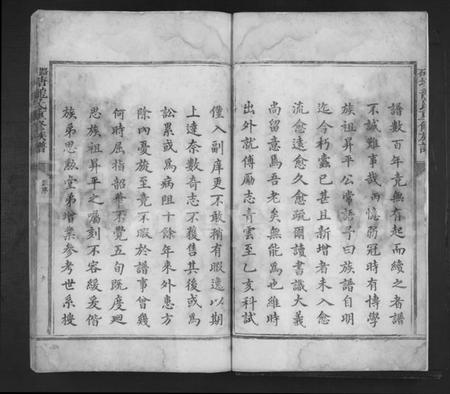 譜數百年竟無有起而續之者譜
不誠難事哉而憶弱冠時有博學
族祖昇平公常語予曰族譜自明
迄今朽蠹已甚且新增者未入愈
流愈遠愈久愈疏爾讀書識大義
尚留意焉吾老矣無能為也維時
出外就傅勵志青雲至乙亥科試
僅入副庠更不敢稍有暇遠以期
上達奈數奇志不獲售其後或為
訟累或為病阻十餘年來外患方
除內憂旋至竟不暇於譜事曾幾
何時屈指韶華不覺五旬既度廻
思族祖昇平之囑刻不容緩爰偕
族弟思勲堂弟增業參考世系搜